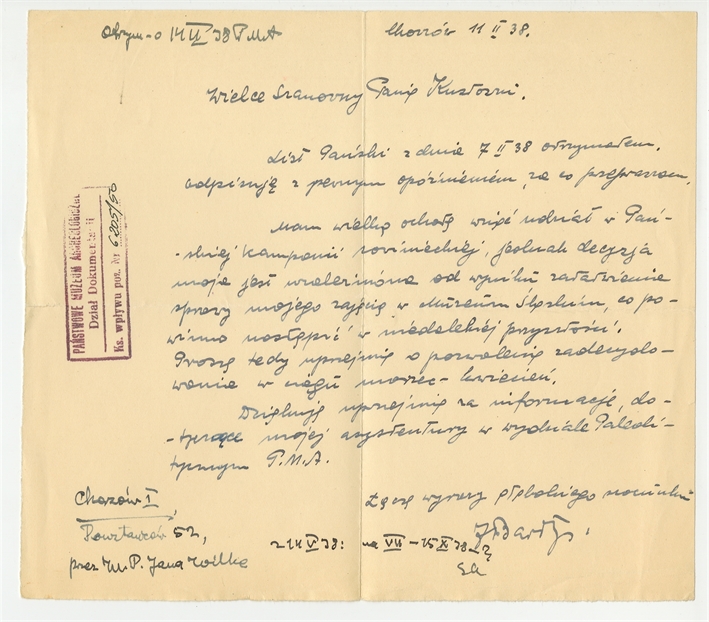 Otrzym-o 14 II 38 P.M.A
Chorzów 11 II 38.
Wielce Szanowny Panie Kustoszu.
List Pański z dnia 7 II 38 otrzymałem,
odpisuję z pewnym opóźnieniem, za co przepraszam.
Mam wielką ochotę wziąć udział w Pań-
-skiej kampanii rowinieckiej, jednak decyzja
moja jest uzależniona od wyniku załatwienia
sprawy mojego zajęcia w Muzeum Śląskim, co po-
winno nastąpić w niedalekiej przyszłości.
Proszę tedy uprzejmie o pozwolenie zadecydo-
wania w ciągu marzec-kwiecień.
Dziękuję uprzejmie za informacje, do-
-tyczące mojej asystentury w wydziale Paleoli-
tycznym P.M.A.
Łączę wyrazy głębokiego szacunku
Chorzów I,
Powstańców 52,
przez W.P. Jana Wilka
z 14 V 38: na VII – 15 XI 38
PAŃSTWOWE MUZEUM ARCHEOLOGICZNE
Dział Dokumentacji
Ks. wpływu poz. Nr 6205/50